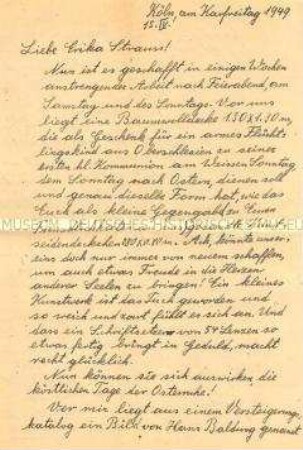 Köln, am Karfreitag 1949
15. IV.
Liebe Erika Strauss!
Nun ist es geschafft in einigen Wochen
anstrengender Arbeit nach Feierabend, am
Samstag und des Sonntags. Vor uns
liegt eine Baumwolldecke 1.30 x 1.30 m,
die als Geschenk für ein armes Flücht-
lingskind aus Oberschlesien zu seiner
ersten hl. Kommunion am Weissen Sonntag
dem Sonntag nach Ostern, dienen soll
und genau dieselbe Form hat, wie das
Tuch als kleine Gegengabe
seidendecken Ach, könnte unser-
eins doch nur immer von neuem schaffen,
um auch etwas Freude in die Herzen
anderer Seelen zu bringen! Ein kleines
Kunstwerk ist das Tuch geworden und
so weich und zart fühlt es sich an. Und
dass ein von 54 Lenzen so
etwas fertig bringt in Geduld, macht
recht glücklich.
Nun können sie sich auswirken die
köstlichen Tage der Osterruhe!
Vor mir liegt aus einem Versteigerungs-
katalog ein Bild von Hans Baldung genannt